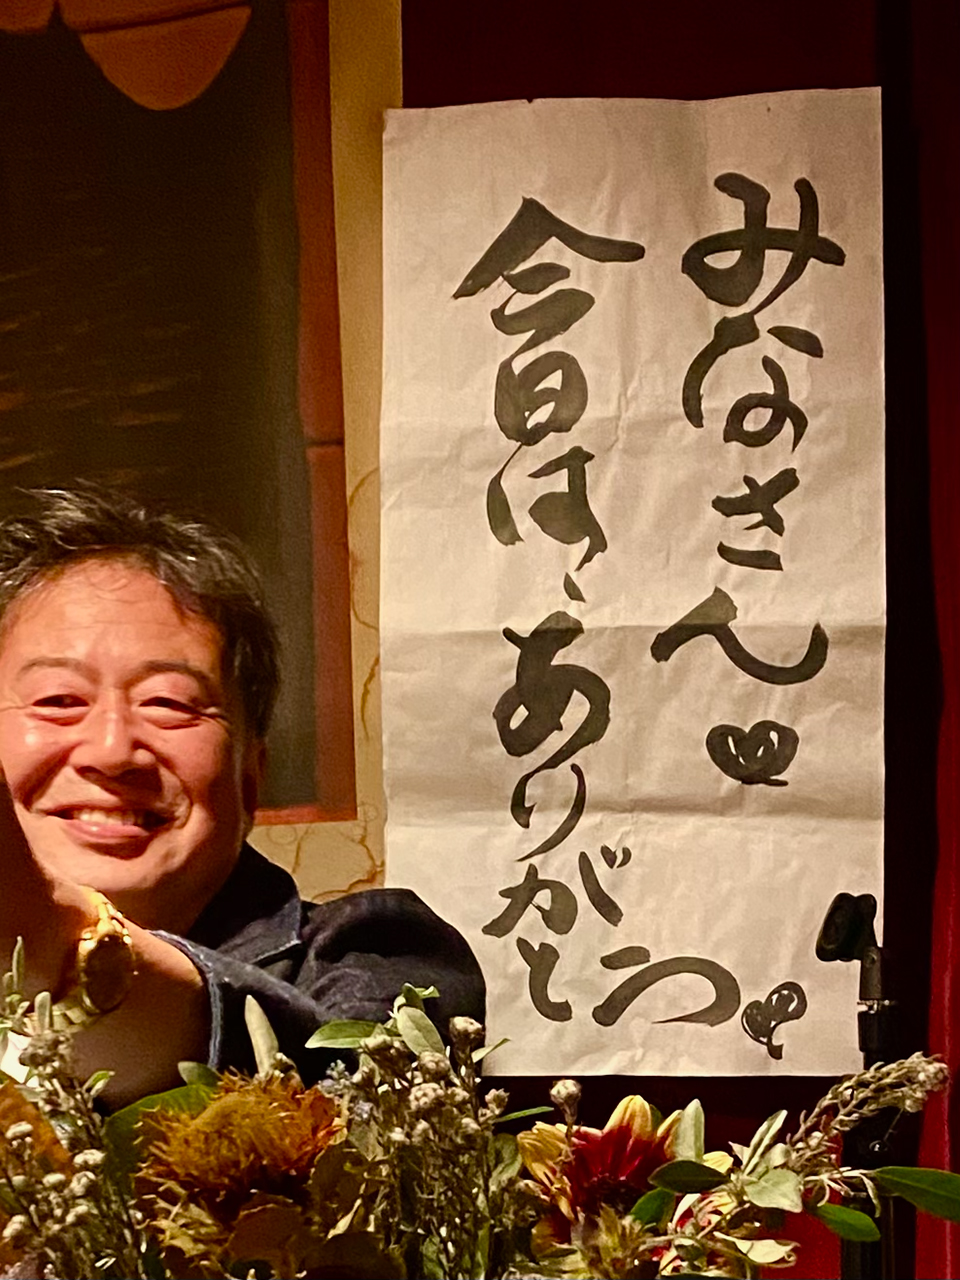 みなさん
今日は、ありがとう